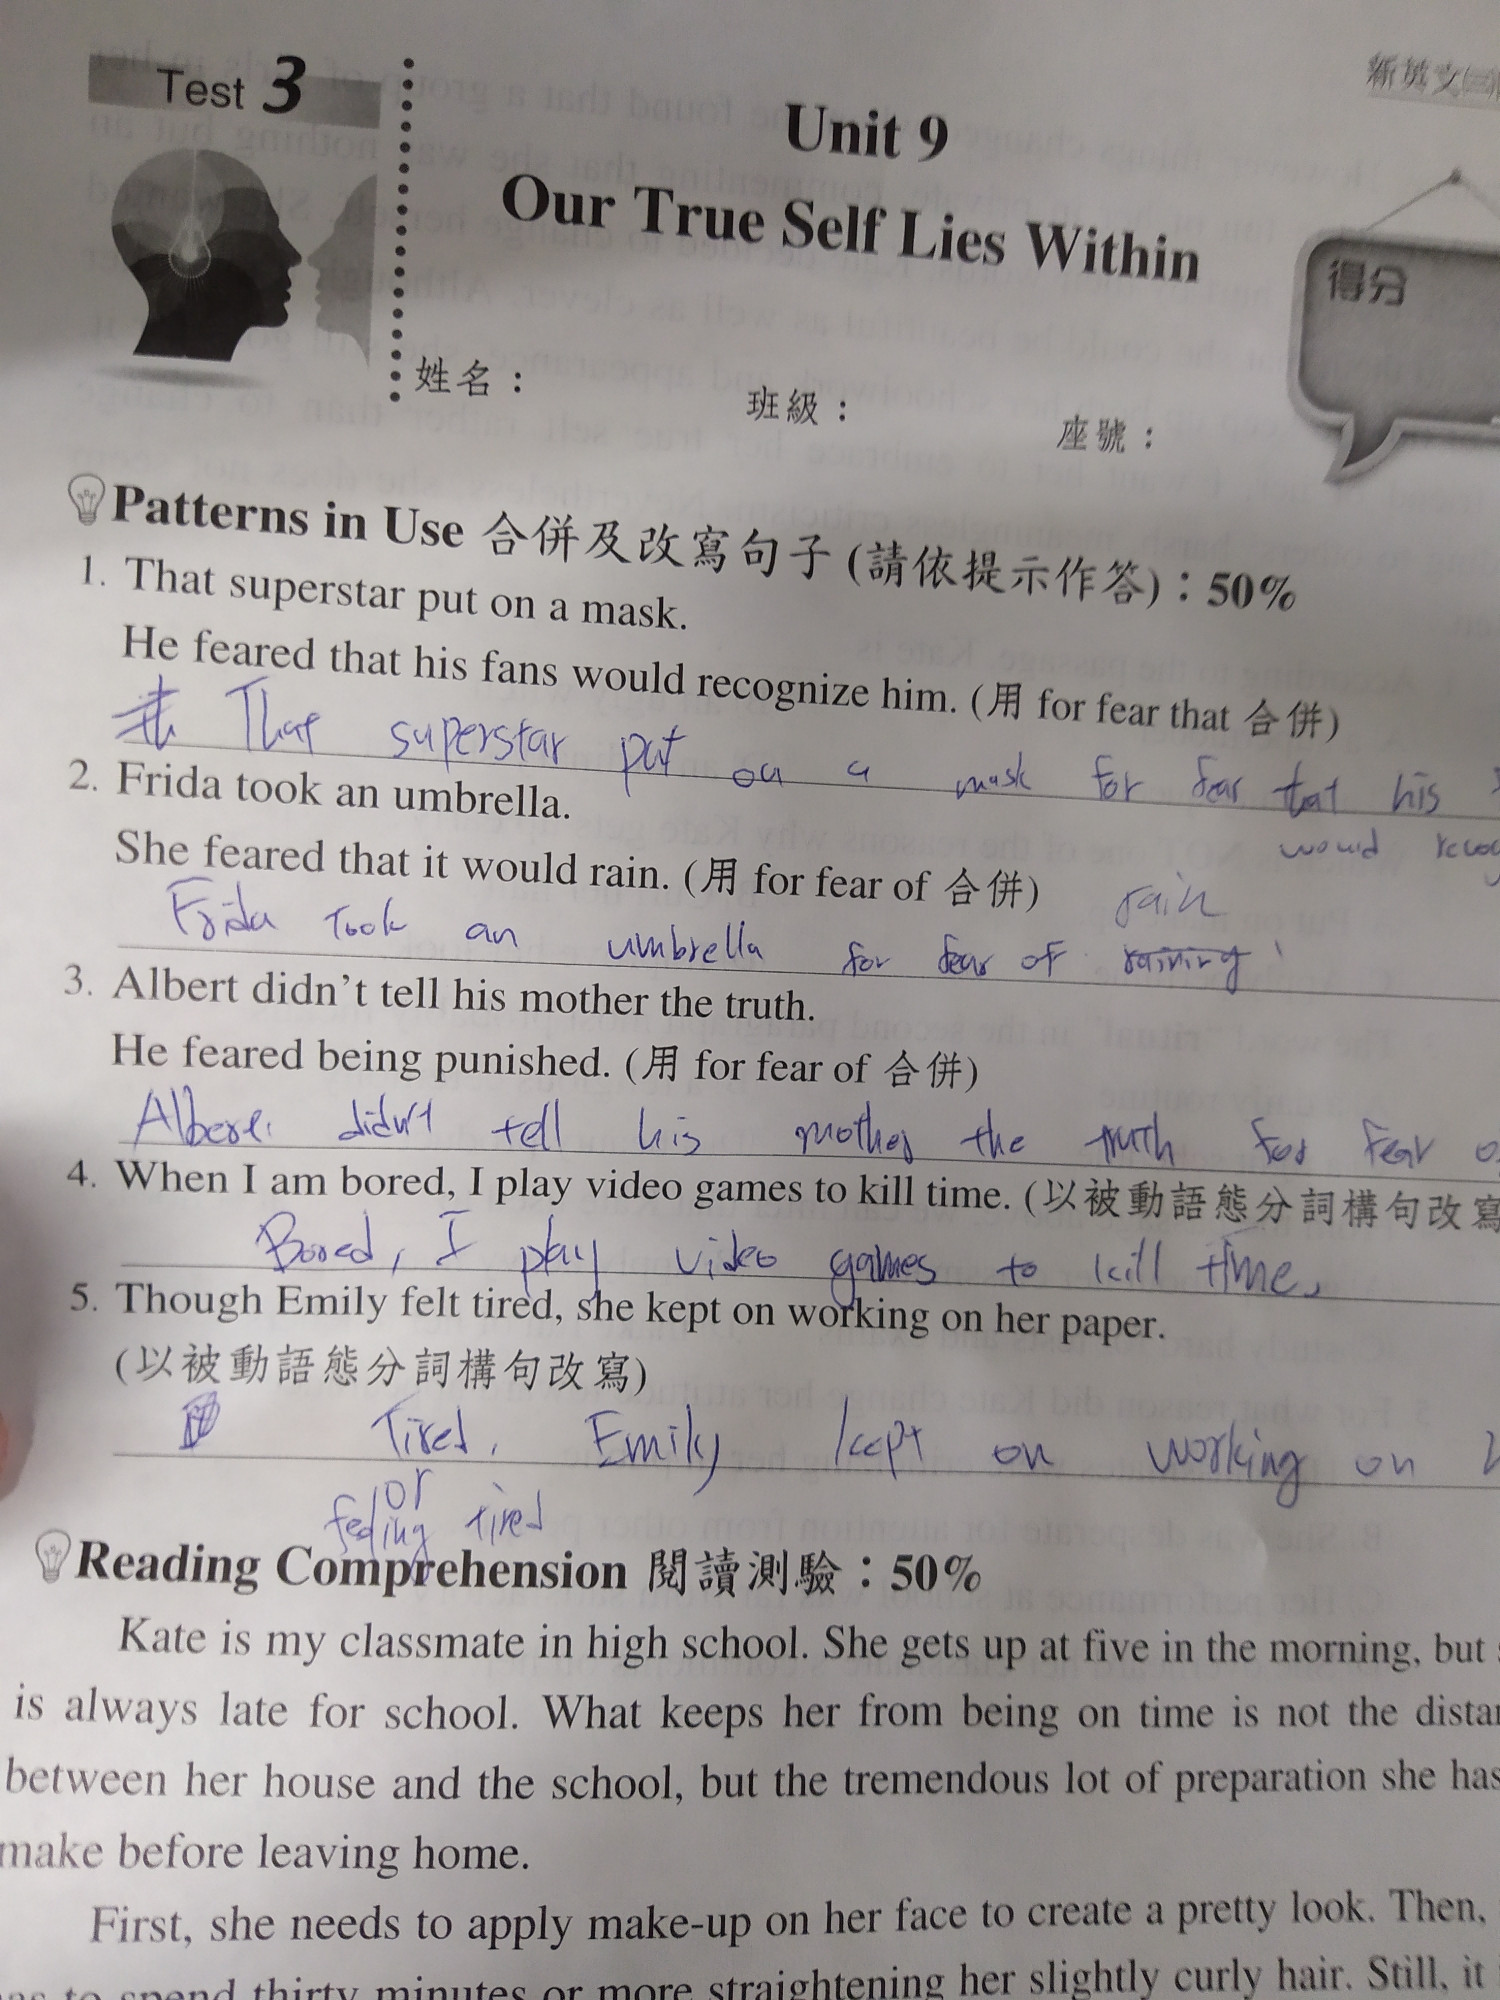 新英文(三)
Test 3
Unit 9
Our True Self Lies Within
得分
姓名：
班級：
座號：
Patterns in Use 合併及改寫句子 (請依提示作答)：50%
1. That superstar put on a mask.
He feared that his fans would recognize him. (用 for fear that 合併)
That superstar put on a mask for fear that his
would
2. Frida took an umbrella.
She feared that it would rain. (用 for fear of 合併)
rain
Frida Took an umbrella for fear of raining
3. Albert didn't tell his mother the truth.
He feared being punished. (用 for fear of 合併)
Albert didn't tell his mother the truth for fear
4. When I am bored, I play video games to kill time. (以被動語態分詞構句改寫
Bored, I play video games to kill time.
5. Though Emily felt tired, she kept on working on her paper.
(以被動語態分詞構句改寫)
Tired, Emily kept on working on
or
feeling tired
Reading Comprehension 閱讀測驗：50%
Kate is my classmate in high school. She gets up at five in the morning, but
is always late for school. What keeps her from being on time is not the
between her house and the school, but the tremendous lot of preparation she has
make before leaving home.
First, she needs to apply make-up on her face to create a pretty look. Then,
to spend thirty minutes or more straightening her slightly curly hair. Still, it